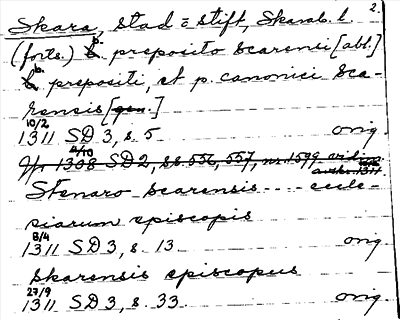 2.
Skara, stad o stift, Skarab. l.
(forts.) b. preposito scarensi [abl.]
b. prepositi, et p. canonici sca-
rensis [gen.]
10/2
1311 SD 3, s. 5 orig.
4/10
1308 SD 2, s. 556, 557, nr. 1599
Stenaro scarensis ---- eccle-
siarum episcopis
8/4
1311 SD 3, s. 13 orig.
Skarensis episcopus
27/9
1311 SD 3, s. 33. orig.